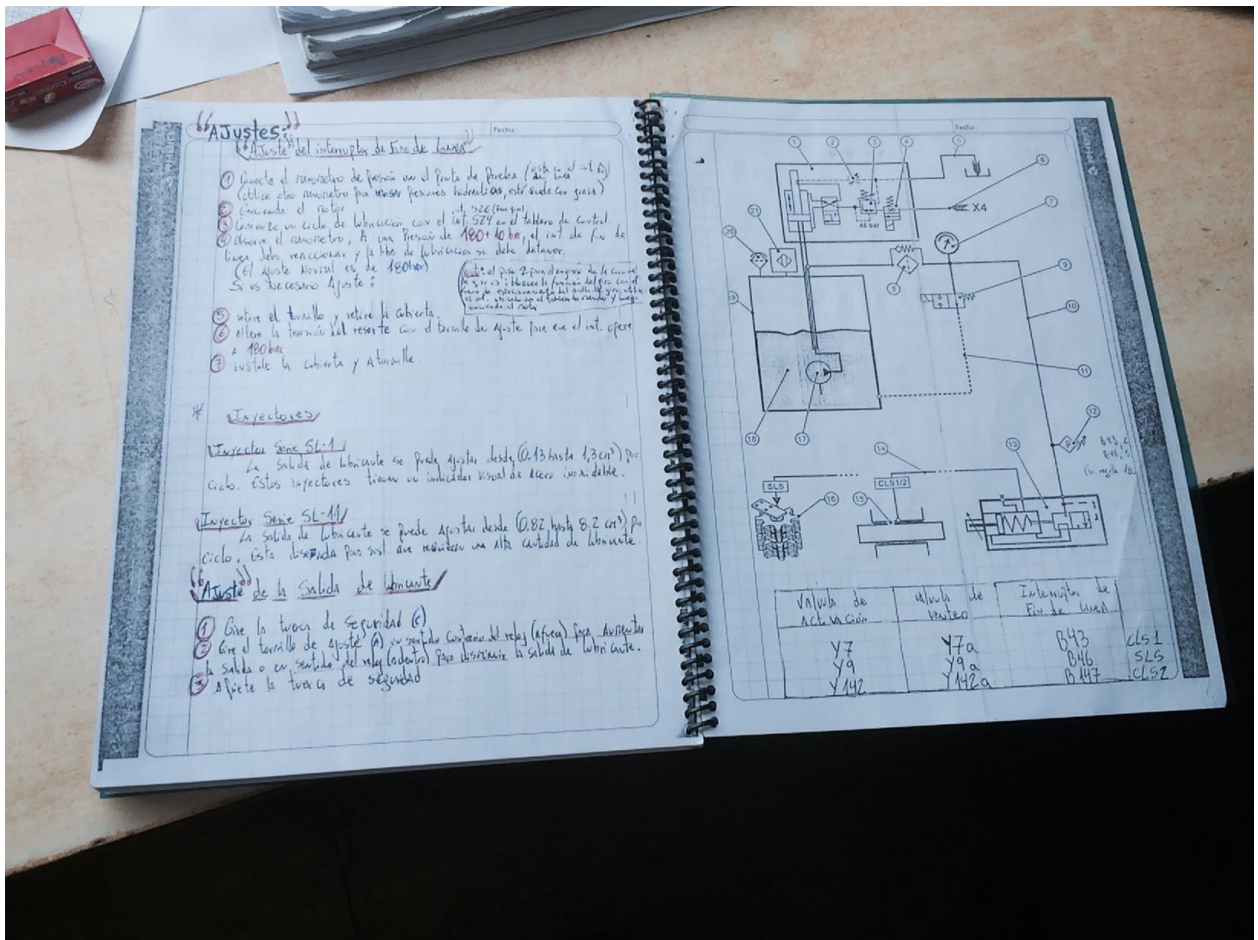 "Ajustes:"
Fecha:
"Ajuste" del interruptor de Fin de Linea
① Conecte el manometro de presión en el Punto de Prueba
(utilice otro manometro para presiones hidraulicas, este quede con grasa)
② Encienda el motor
③ Comience un ciclo de lubricación con el int. S24 en el tablero de Control
④ Observe el manometro, A una Presión de 180+10 bar, el int de fin de
linea debe reaccionar y la bba de lubricación se debe detener.
(El ajuste Normal es de 180bar)
Si es Necesario Ajuste:
⑤ retire el tornillo y retire la cubierta.
⑥ altere la tensión del resorte con el tornillo de ajuste para que el int. opere
a 180bar
⑦ instale la cubierta y atornille
* Inyectores
Inyector Serie SL-1
La Salida de lubricante se puede ajustar desde (0.13 hasta 1,3cm³) por
Ciclo. Estos inyectores tienen un indicador visual de acero inoxidable.
Inyector Serie SL-11
La Salida de lubricante se puede ajustar desde (0.82 hasta 8.2 cm³) por
Ciclo. Esta diseñada para sist que requieran una Alta cantidad de lubricante
"Ajuste" de la Salida de lubricante
① Gire la tuerca de Seguridad (C)
② Gire el tornillo de ajuste (A) en sentido contrario del reloj (afuera) para Aumentar
la salida o en sentido del reloj (adentro) para disminuir la salida de lubricante.
③ Apriete la tuerca de seguridad
Fecha:
1
2
3
4
5
6
X4
7
8
9
10
11
12
13
14
15
16
17
18
19
20
21
SLS
CLS1/2
B43,
B46,
Valvula de Activación
Valvula de Venteo
Interruptor de Fin de Linea
Y7 Y7a B43 CLS1
Y9 Y9a B46 SLS
Y142 Y142a B147 CLS2